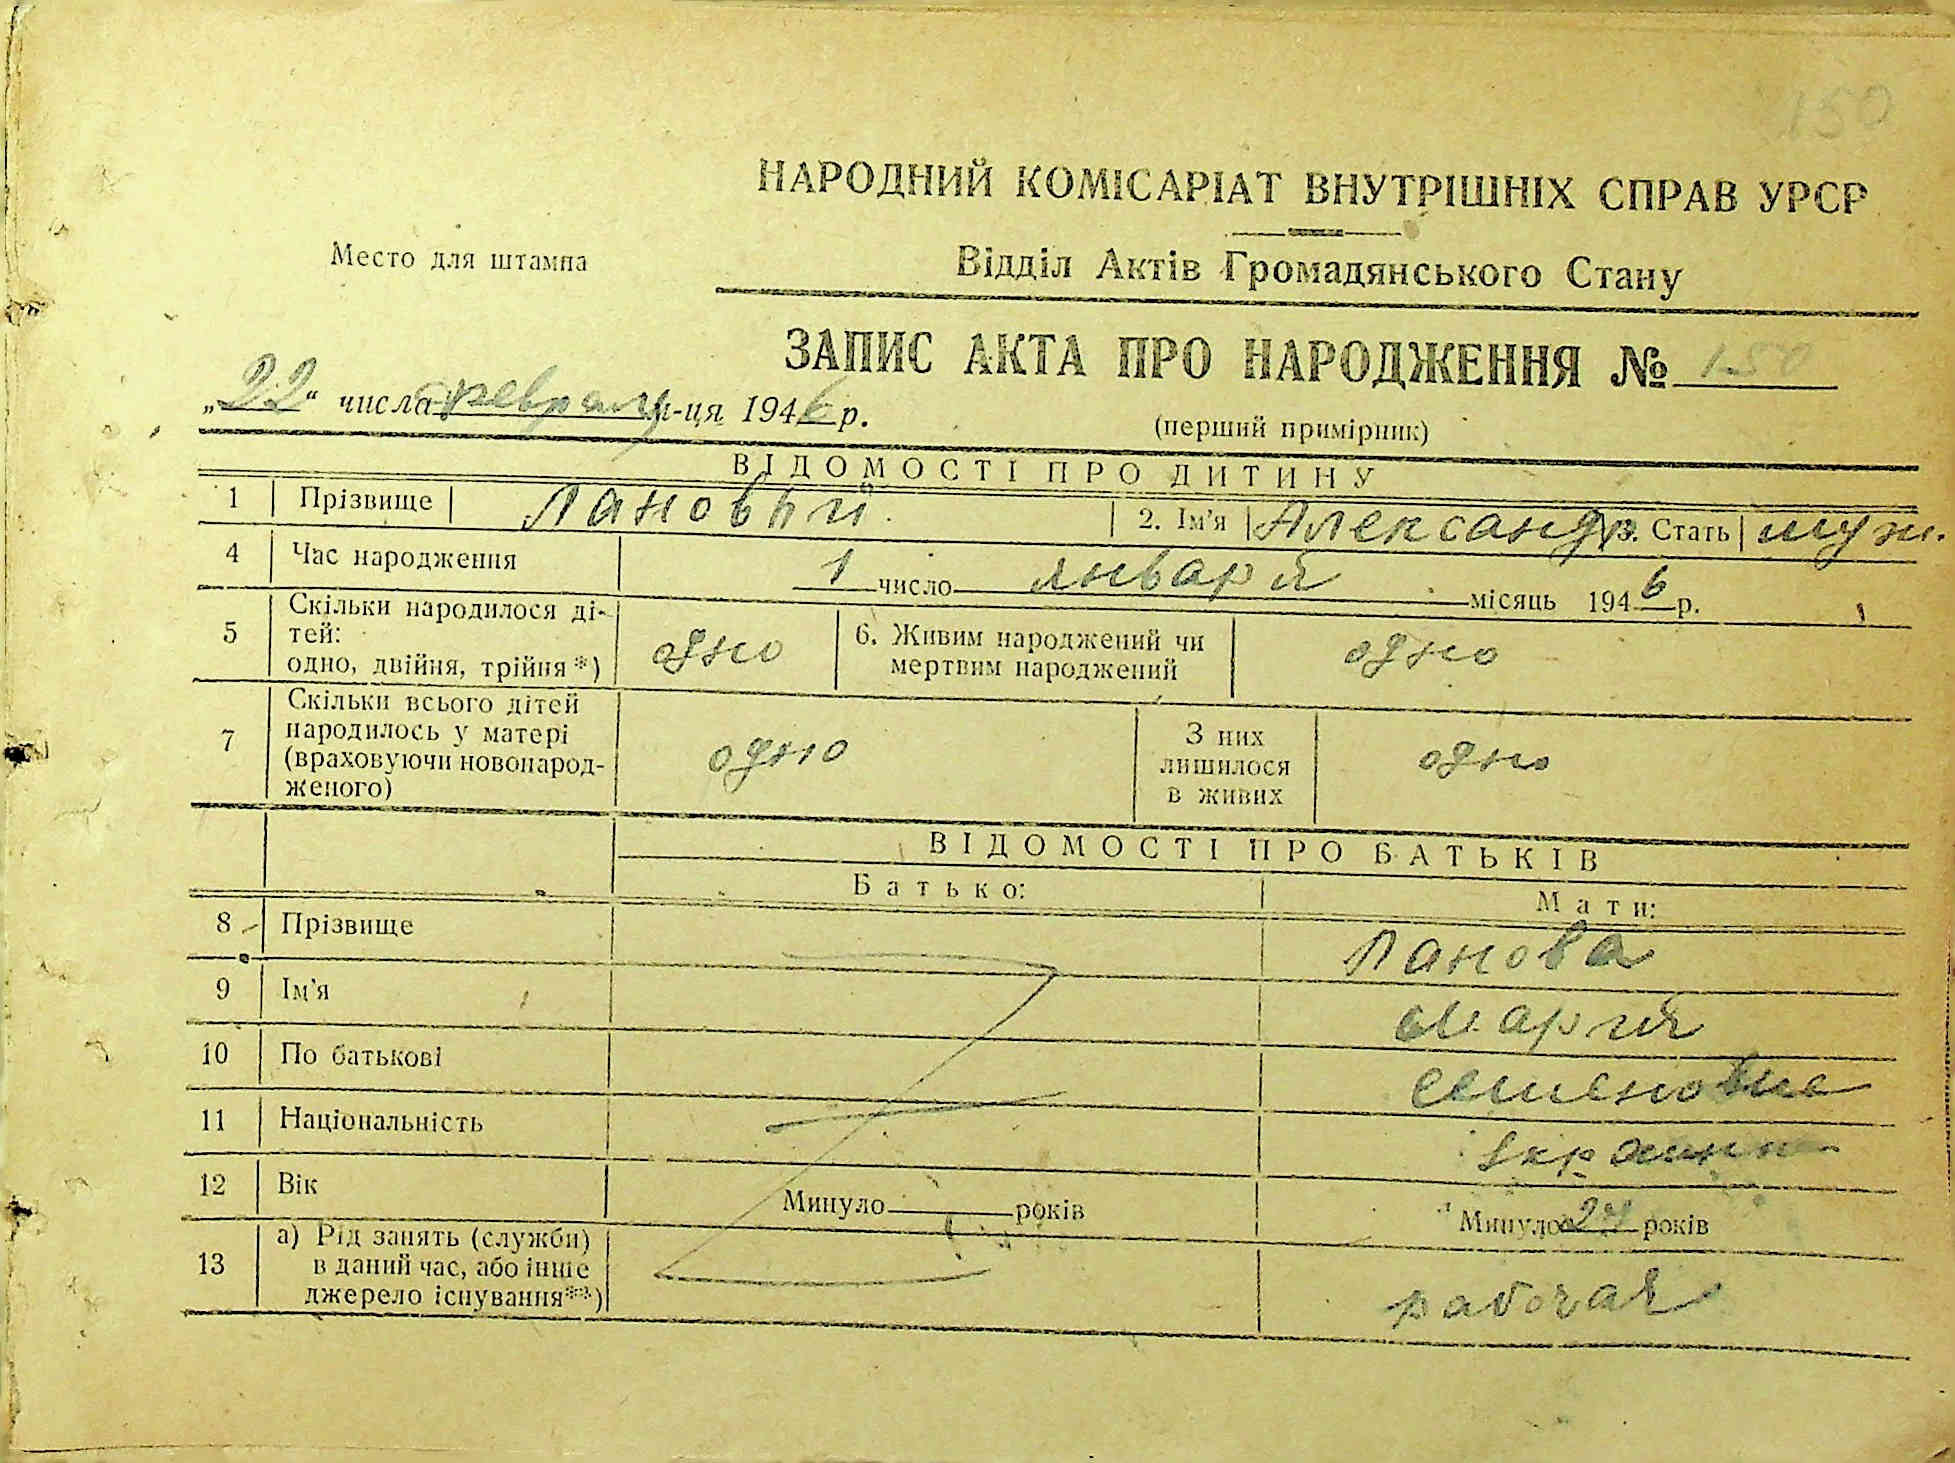 150
НАРОДНИЙ КОМІСАРІАТ ВНУТРІШНІХ СПРАВ УРСР
Место для штампа
Відділ Актів Громадянського Стану
ЗАПИС АКТА ПРО НАРОДЖЕННЯ № 150
„22“ числа февраля м-ця 1946 р.
(перший примірник)
ВІДОМОСТІ ПРО ДИТИНУ
1 Прізвище Лановый 2. Ім'я Александр 3. Стать муж.
4 Час народження 1 число января місяць 1946 р.
5 Скільки народилося ді-
тей:
одно, двійня, трійня*) одно
6. Живим народжений чи
мертвим народжений одно
7 Скільки всього дітей
народилось у матері
(враховуючи новонарод-
женого) одно
З них
лишилося
в живих одно
ВІДОМОСТІ ПРО БАТЬКІВ
Батько: Мати:
8 Прізвище Ланова
9 Ім'я Мария
10 По батькові Семеновна
11 Національність
12 Вік Минуло року років Минуло 24 років
13 а) Рід занять (служби)
в даний час, або інше
джерело існування**) рабочая